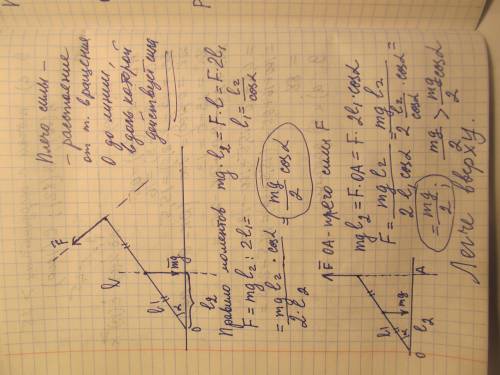 Плечо силы –
– расстояние
от т. вращения
О до линии,
вдоль которой
действует сила
F
l₁
l₁
α
mg
O
l₂
Правило моментов mg·l₂ = F·l = F·2l₁
F = mg l₂ : 2l₁ =
l₁ = l₂/cosα
= mg l₂/(2·l₂) · cosα = mg/2 cosα
F OA - плечо силы F
mg l₂ = F·OA = F·2l₁·cosα
F = mg l₂/(2 l₁ cosα) = mg l₂/(2 l₂/cosα cosα) =
= mg/2; mg/2 > mg/2 cosα
Легче вверху.
l₁
α
mg
O
l₂
A